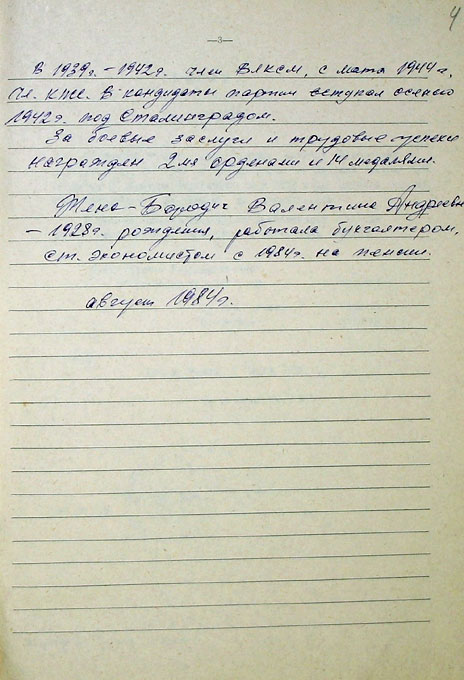 4
—3—
В 1939г. – 1942г. член ВЛКСМ, с мата 1944г.
чл. КПСС. В кандидаты партии вступал осенью
1942г. под Сталинградом.
За боевые заслуги и трудовые успехи
награжден 2мя орденами и 14 медалями.
Жена – Бородич Валентина Андреевна
– 1928г. рождения, работала бухгалтером,
ст. экономистом с 1984г. на пенсии.
август 1984г.